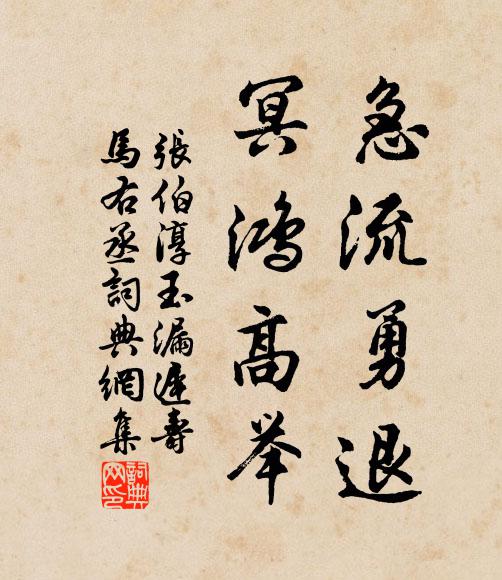 急流勇退
冥鸿高举
張伯淳玉漏遲壽
馬右丞詞典網集
詞典网印